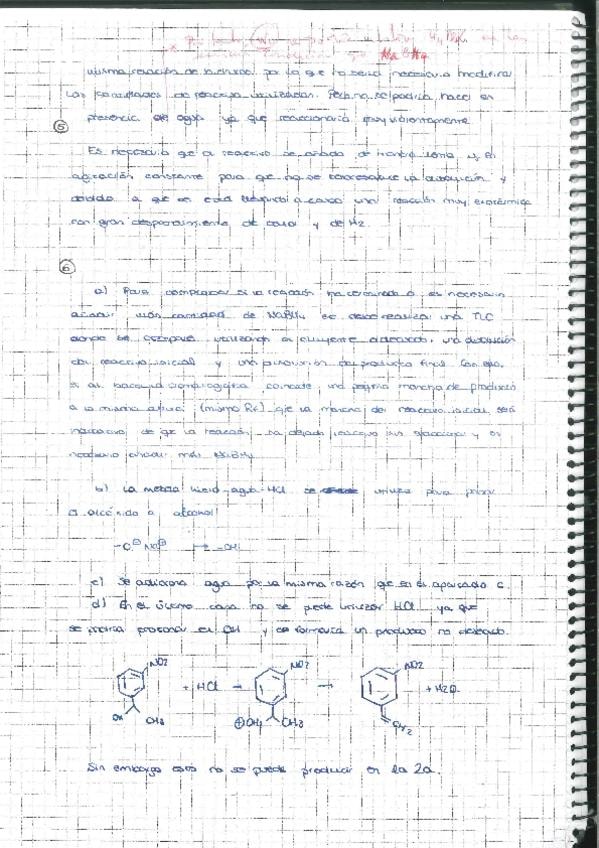 misma relación de hidruro por lo que no sería necesario modificar
las cantidades de reactivo utilizadas. Pero no se podría hacer en
presencia de agua ya que reaccionaría muy violentamente
5
Es necesario que el reactivo se añada de forma lenta y en
agitación constante para que no se la disolución y
debido a que se está llevando a cabo una reacción muy exotérmica
con gran desprendimiento de calor y de H2.
6
a) Para comprobar si la reacción ha terminado o es necesario
añadir más cantidad de NaBH4 se debe realizar una TLC
donde se compare, utilizando el eluyente adecuado, una disolución
del reactivo inicial y una disolución del producto final. Con ello,
si al hacer la cromatografía coincide una pequeña mancha de producto
a la misma altura (mismo Rf) que la mancha del reactivo inicial será
indicativo de que la reacción ha dejado reactivo sin reaccionar y es
necesario añadir más NaBH4
b) La mezcla hielo-agua-HCl se utiliza para pasar
el alcóxido a alcohol
c) Se adiciona agua por la misma razón que en el apartado
d) En el último caso no se puede utilizar HCl ya que
se podría protonar el OH y se formaría un producto no deseado.
NO2 + HCl → NO2 → NO2 + H2O
OH CH3 ⊕OH2 CH3 CH2
Sin embargo esto no se puede producir en la 2a.